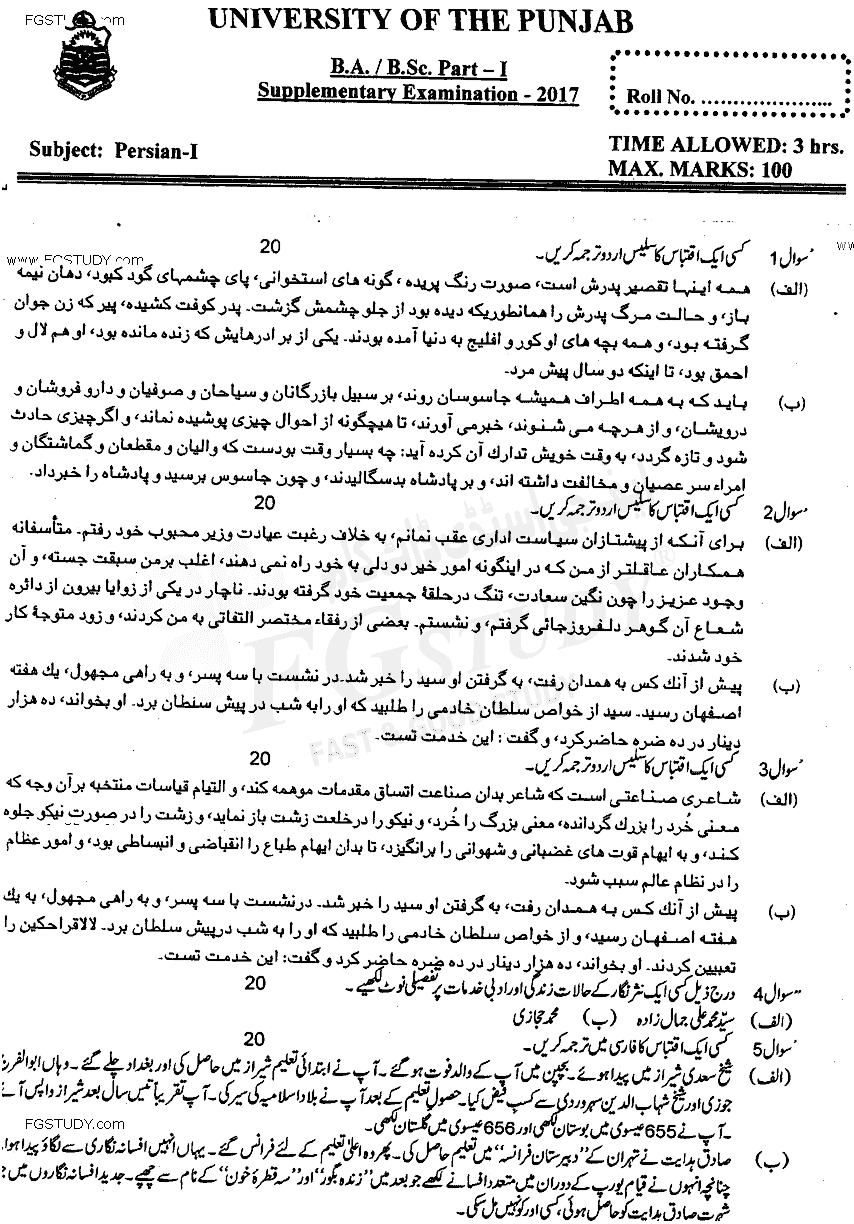 FGSTUDY.com
UNIVERSITY OF THE PUNJAB
B.A. / B.Sc. Part – I
Supplementary Examination - 2017
Roll No. ......................
Subject: Persian-I
TIME ALLOWED: 3 hrs.
MAX. MARKS: 100
www.FGSTUDY.com
سوال 1 کسی ایک اقتباس کا سلیس اردو ترجمہ کریں۔ 20
(الف) همه اینها تقصیر پدرش است، صورت رنگ پریده، گونه های استخوانی، پای چشمهای گود کبود، دهان نیمه
باز، و حالت مرگ پدرش را همانطوریکه دیده بود از جلو چشمش گزشت. پدر کوفت کشیده، پیر که زن جوان
گرفته بود، و همه بچه های او کور و افلیج به دنیا آمده بودند. یکی از برادرهایش که زنده مانده بود، او هم لال و
احمق بود، تا اینکه دو سال پیش مرد.
(ب) باید که به همه اطراف همیشه جاسوسان روند، بر سبیل بازرگانان و سیاحان و صوفیان و دارو فروشان و
درویشان، و از هرچه می شنوند، خبرمی آورند، تا هیچگونه از احوال چیزی پوشیده نماند، و اگرچیزی حادث
شود و تازه گردد، به وقت خویش تدارك آن کرده آید: چه بسیار وقت بودست که والیان و مقطعان و گماشتگان و
امراء سر عصیان و مخالفت داشته اند، و بر پادشاه بدسگالیدند، و چون جاسوس برسید و پادشاه را خبرداد.
سوال 2 کسی ایک اقتباس کا سلیس اردو ترجمہ کریں۔ 20
(الف) برای آنکه از پیشتازان سیاست اداری عقب نمانم، به خلاف رغبت عیادت وزیر محبوب خود رفتم. متأسفانه
همکاران عاقلتر از من که در اینگونه امور خیر دو دلی به خود راه نمی دهند، اغلب برمن سبقت جسته، و آن
وجود عزیز را چون نگین سعادت، تنگ درحلقۀ جمعیت خود گرفته بودند. ناچار در یکی از زوایا بیرون از دائره
شعاع آن گوهر دلفروزجائی گرفتم، و نشستم. بعضی از رفقاء مختصر التفاتی به من کردند، و زود متوجۀ کار
خود شدند.
(ب) پیش از آنك کس به همدان رفت، به گرفتن او سید را خبر شد. در نشست با سه پسر، و به راهی مجهول، یك هفته
اصفهان رسید. سید از خواص سلطان خادمی را طلبید که او رابه شب در پیش سنطان برد. او بخواند، ده هزار
دینار در ده ضره حاضرکرد، و گفت: این خدمت تست.
سوال 3 کسی ایک اقتباس کا سلیس اردو ترجمہ کریں۔ 20
(الف) شاعری صناعتی است که شاعر بدان صناعت اتساق مقدمات موهمه کند، و التیام قیاسات منتخبه برآن وجه که
معنی خُرد را بزرك گردانده، معنی بزرگ را خُرد، و نیکو را درخلعت زشت باز نماید، و زشت را در صورت نیکو جلوه
کند، و به ایهام قوت های غضبانی و شهوانی را برانگیزد، تا بدان ایهام طباع را انقباضی و انبساطی بود، و امور عظام
را در نظام عالم سبب شود.
(ب) پیش از آنك کس به همدان رفت، به گرفتن او سید را خبر شد. درنشست با سه پسر، و به راهی مجهول، به یك
هفته اصفهان رسید، و از خواص سلطان خادمی را طلبید که او را به شب درپیش سلطان برد. لالاقراحکین را
تعیین کردند. او بخواند، ده هزار دینار در ده ضره حاضر کرد و گفت: این خدمت تست.
سوال 4 درج ذیل کسی ایک نثر نگار کے حالات زندگی اور ادبی خدمات پر تفصیلی نوٹ لکھیے۔ 20
(الف) سیّد محمد علی جمال زادہ (ب) محمد حجازی
سوال 5 کسی ایک اقتباس کا فارسی میں ترجمہ کریں۔ 20
(الف) شیخ سعدی شیراز میں پیدا ہوئے۔ بچپن میں آپ کے والد فوت ہو گئے۔ آپ نے ابتدائی تعلیم شیراز میں حاصل کی اور بغداد چلے گئے۔ وہاں ابوالفرج
جوزی اور شیخ شہاب الدین سہروردی سے کسب فیض کیا۔ حصول تعلیم کے بعد آپ نے بلاد اسلامیہ کی سیر کی۔ آپ تقریباً تیس سال بعد شیراز واپس آئے
۔ آپ نے 655 عیسوی میں بوستان لکھی اور 656 عیسوی میں گلستان لکھی۔
FGSTUDY.com
(ب) صادق ہدایت نے تہران کے "دبیرستان فرانسہ" میں تعلیم حاصل کی۔ پھر وہ اعلیٰ تعلیم کے لئے فرانس گئے۔ یہاں انہیں افسانہ نگاری سے لگاؤ پیدا ہوا،
چنانچہ انہوں نے قیام یورپ کے دوران میں متعدد افسانے لکھے جو بعد میں "زندہ بگور" اور "سہ قطرۂ خون" کے نام سے چھپے۔ جدید افسانہ نگاروں میں جو
شہرت صادق ہدایت کو حاصل ہوئی، کسی اور کو نہیں مل سکی۔
FGSTUDY
FAST & GOOD STUDY